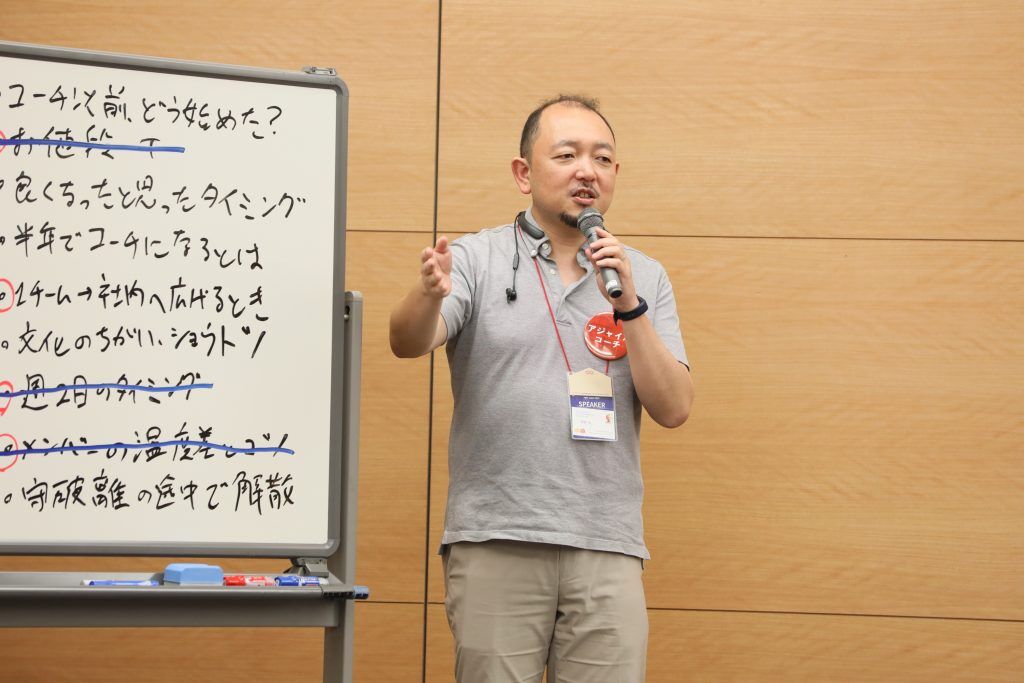 ・コーチ以前、どう始めた？
お値段
・良くなったと思ったタイミング
・半年でコーチになるとは
・1チーム→社内へ広げるとき
・文化のちがい、ショウトツ
・週2日のタイミング
・メンバーの温度差とコツ
・守破離の途中で解散
アジャイル
コーチ
SPEAKER